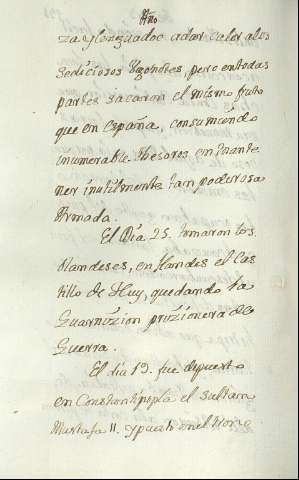 Año
za y lenguadoc a dar calor a los
sediciosos Ugonotes, pero en todas
partes sacaron el mismo fruto
que en españa, consumiendo
inumerable thesoros en mante
ner inutilmente tan poderosa
Armada.
El Dia 25. tomaron los
olandeses, en flandes el Cas
tillo de Huy, quedando la
Guarnizion prizionera de
Guerra.
El dia 19. fue depuesto
en Constantinopla el sultam
Mustafa II. y puesto en el trono